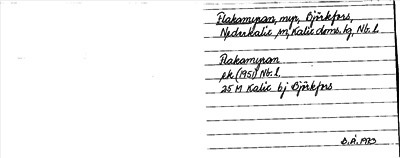 Flakamyran, myr, Björkfors,
Nederkalix sn, Kalix doms. tg, Nb. l.
Flakamyran
ek (1951) Nb. l.
25 M Kalix bj Björkfors
B.Å. 1973